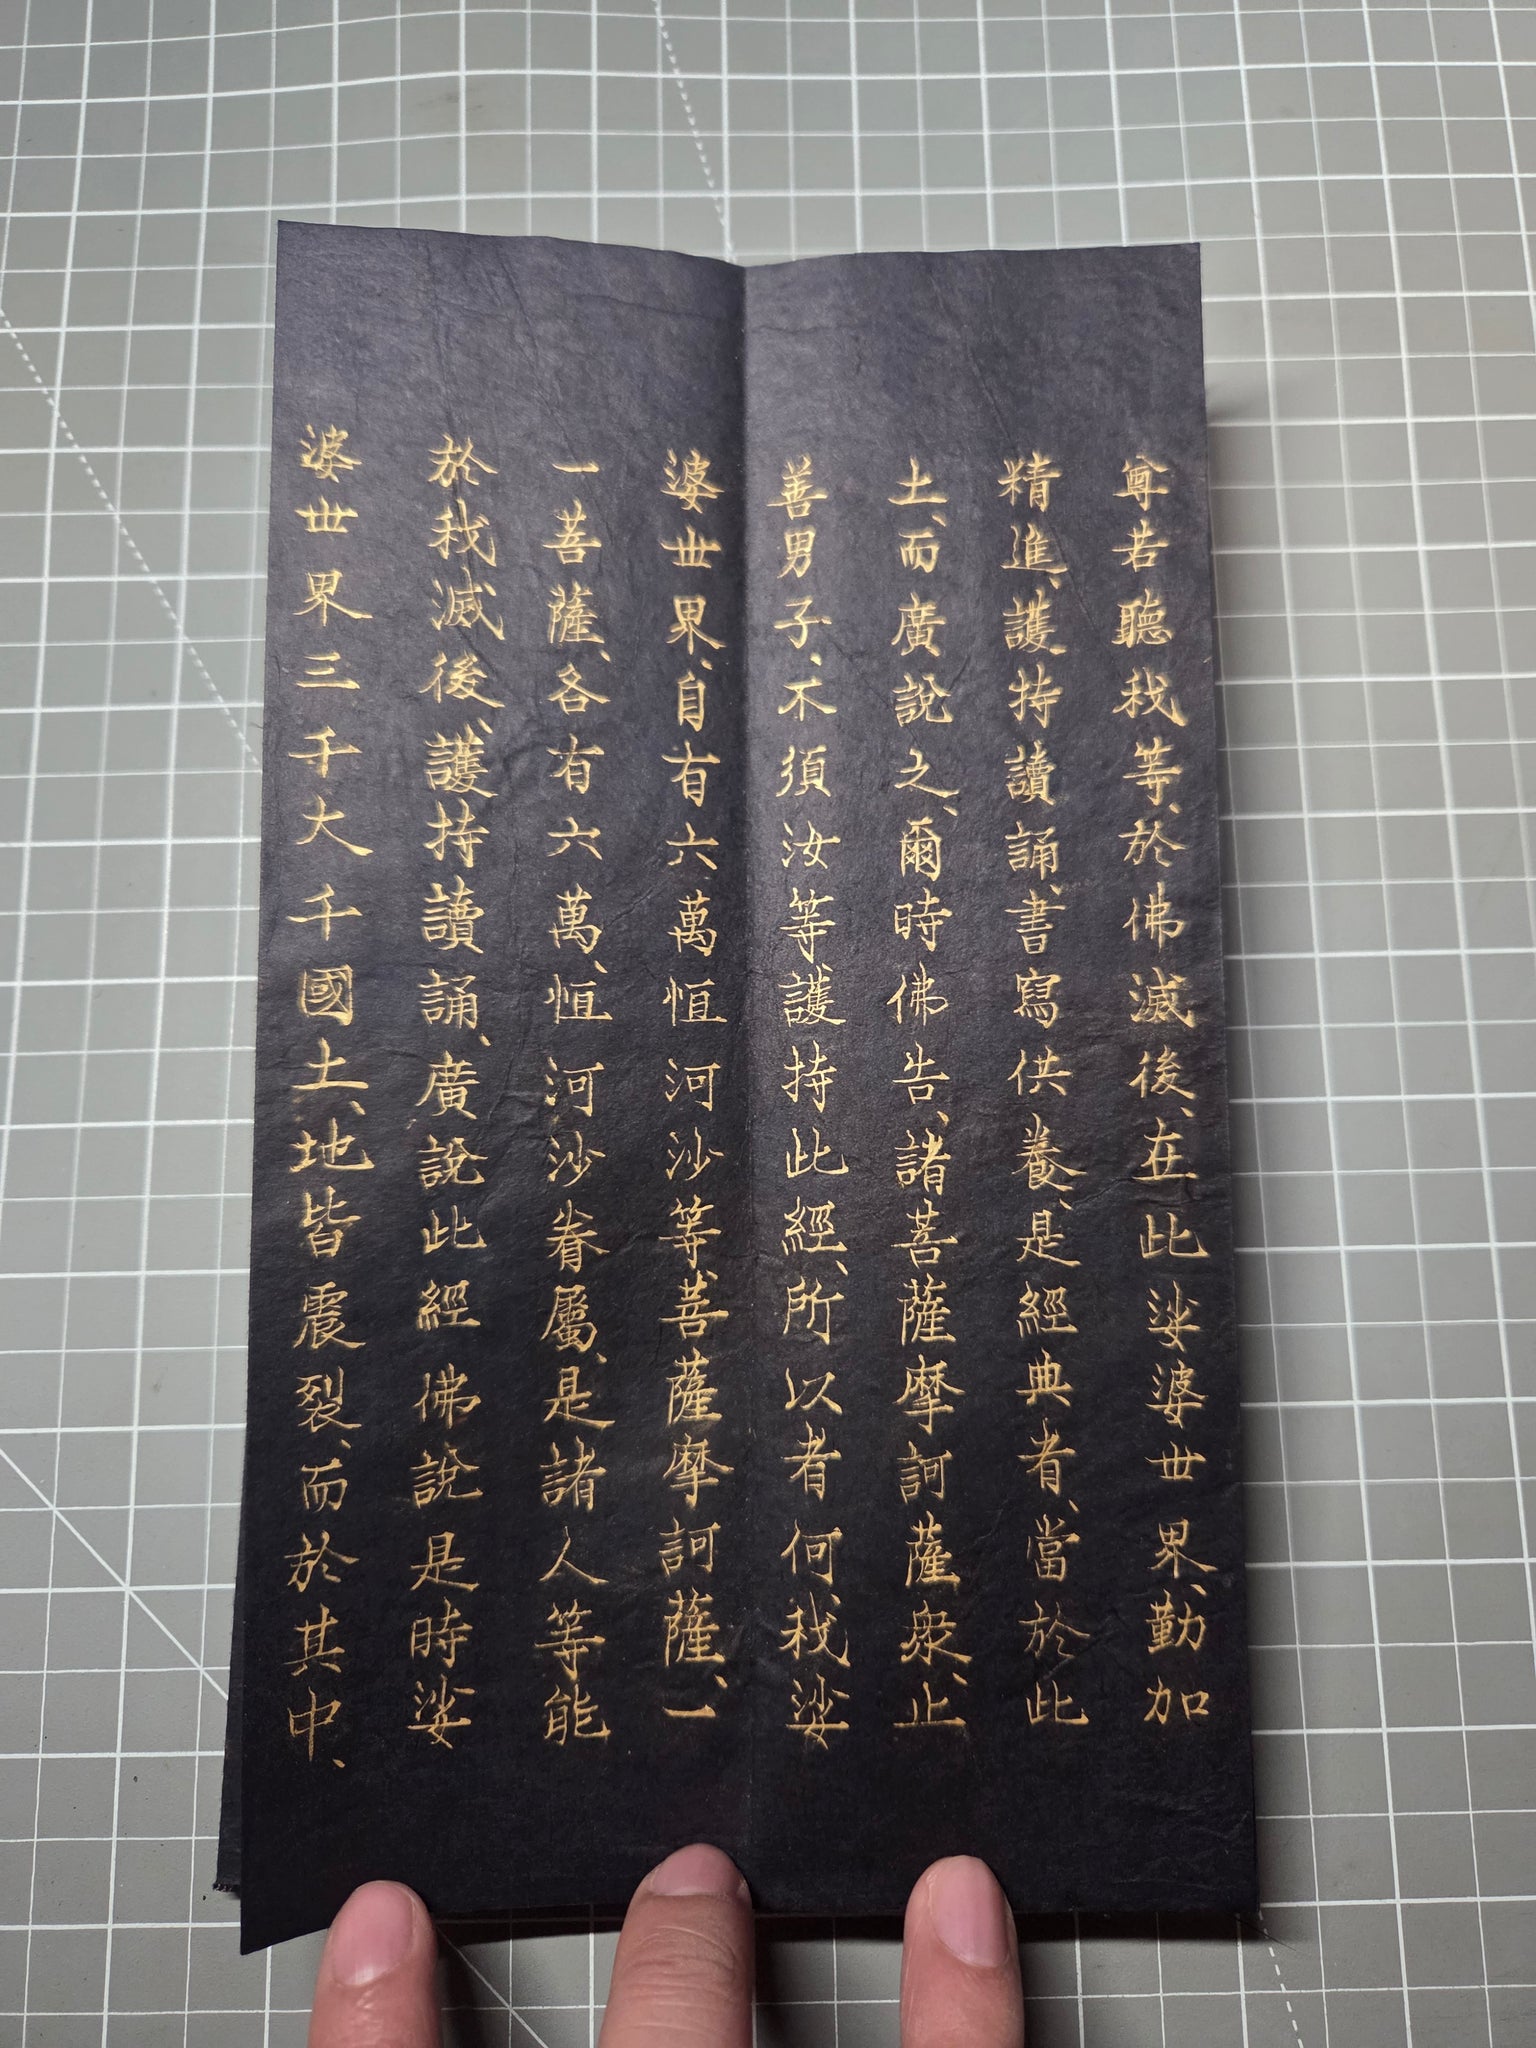 尊若聽我等、於佛滅後、在此娑婆世界、勤加
精進、護持讀誦、書寫供養、是經典者、當於此
土、而廣說之、爾時佛告、諸菩薩摩訶薩眾、止、
善男子、不須汝等、護持此經、所以者何、我娑
婆世界、自有六萬恒河沙等、菩薩摩訶薩、一
一菩薩、各有六萬、恒河沙眷屬、是諸人等能
於我滅後、護持讀誦、廣說此經佛說是時娑
婆世界三千大千國土、地皆震裂、而於其中、